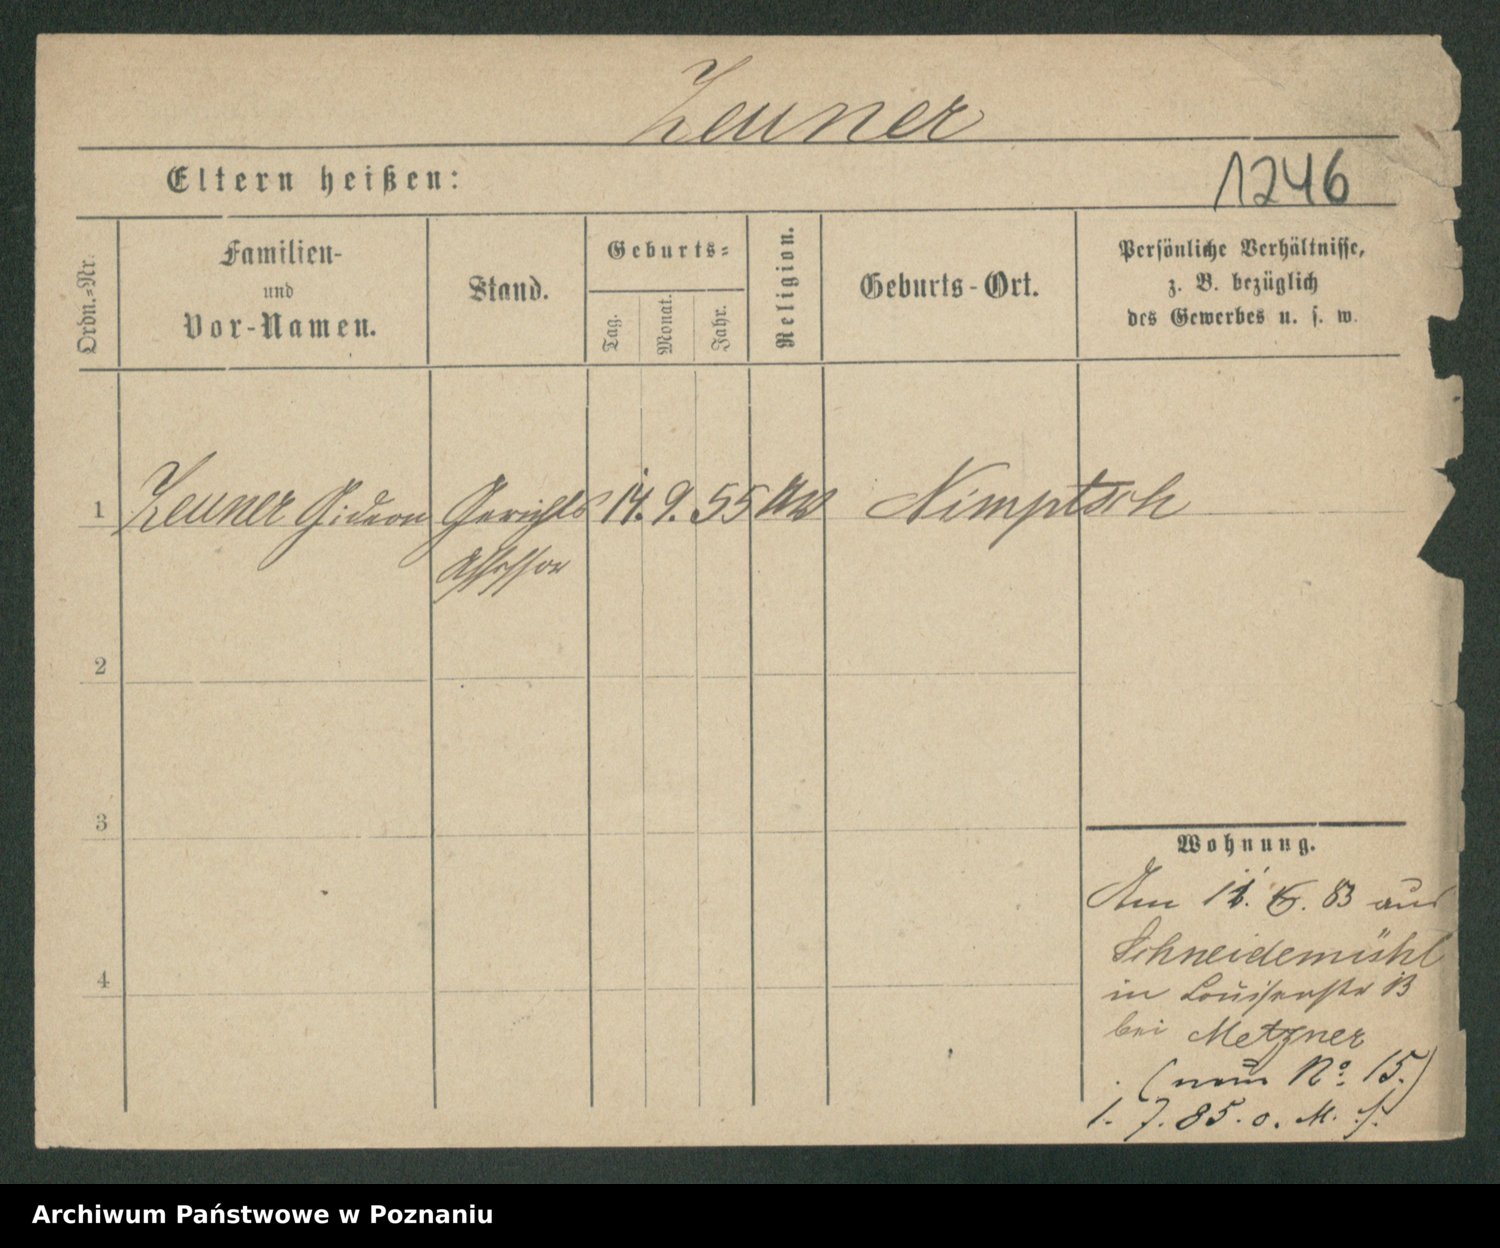 Zeuner
Eltern heißen:
1246
Ordn.-Nr.
Familien-
und
Vor-Namen.
Stand.
Geburts-
Tag.
Monat.
Jahr.
Religion.
Geburts-Ort.
Persönliche Verhältnisse,
z. B. bezüglich
des Gewerbes u. s. w.
1 Zeuner Gideon Gerichts 14. 9. 55 Nimptsch
Assessor
2
3
4
Wohnung.
Am 83 aus
Schneidemühl
in Louisenstr 13
bei Metzner
(neue No. 15.)
1. 7. 85. o. M.
Archiwum Państwowe w Poznaniu